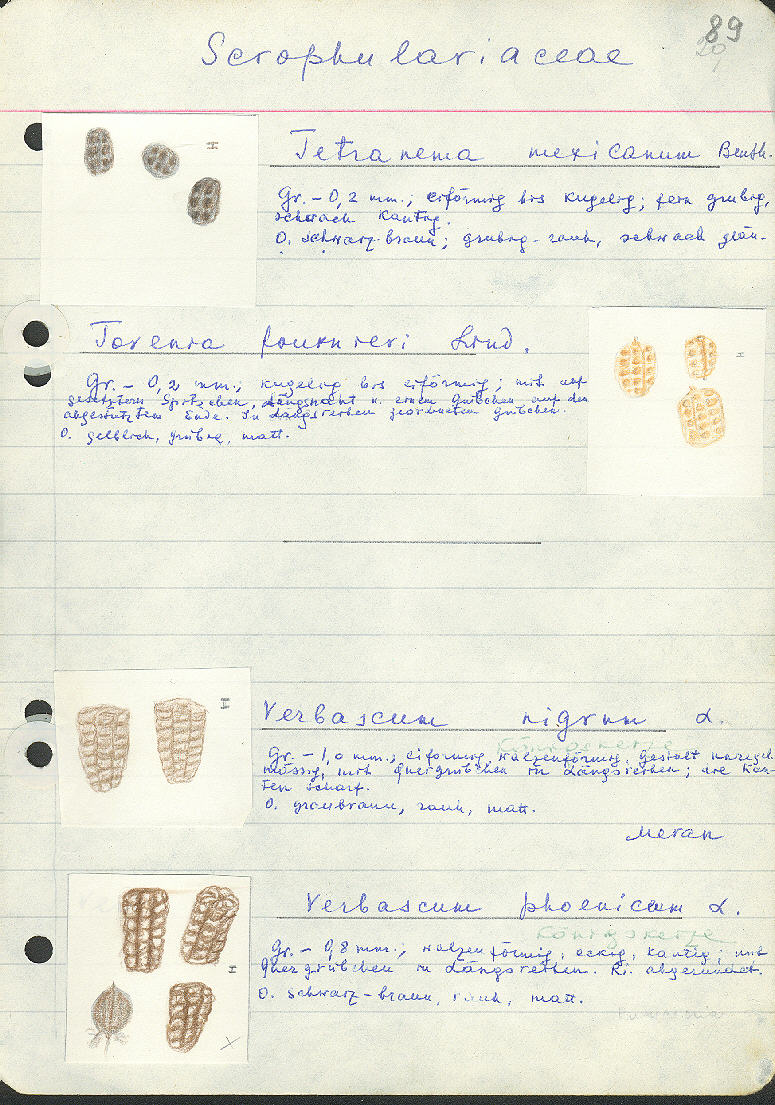 89
20
Scrophulariaceae
Tetranema mexicanum Benth.
Gr. – 0,2 mm.; eiförmig bis kugelig; fein grubig,
schwach kantig.
O. schwarz-braun; grubig-rauh, schwach glän-
Torenia fournieri Lind.
Gr. – 0,2 mm.; kugelig bis eiförmig; mit auf
gesetztem Spitzchen, Längsnaht u. einem Grübchen auf dem
abgestutztem Ende. In Längsreihen geordneten Grübchen.
O. gelblich, grubig, matt.
Verbascum nigrum L.
Königskerze
Gr. – 1,0 mm.; eiförmig, walzenförmig, gestalt unregel
mässig, mit Quergrübchen in Längsreihen; die Kan-
ten scharf.
O. graubraun, rauh, matt.
Meran
Verbascum phoenicum L.
Königskerze
Gr. – 0,8 mm.; walzenförmig, eckig, kantig; mit
Quergrübchen in Längsreihen. Ki. abgerundet.
O. schwarz-braun, rauh, matt.